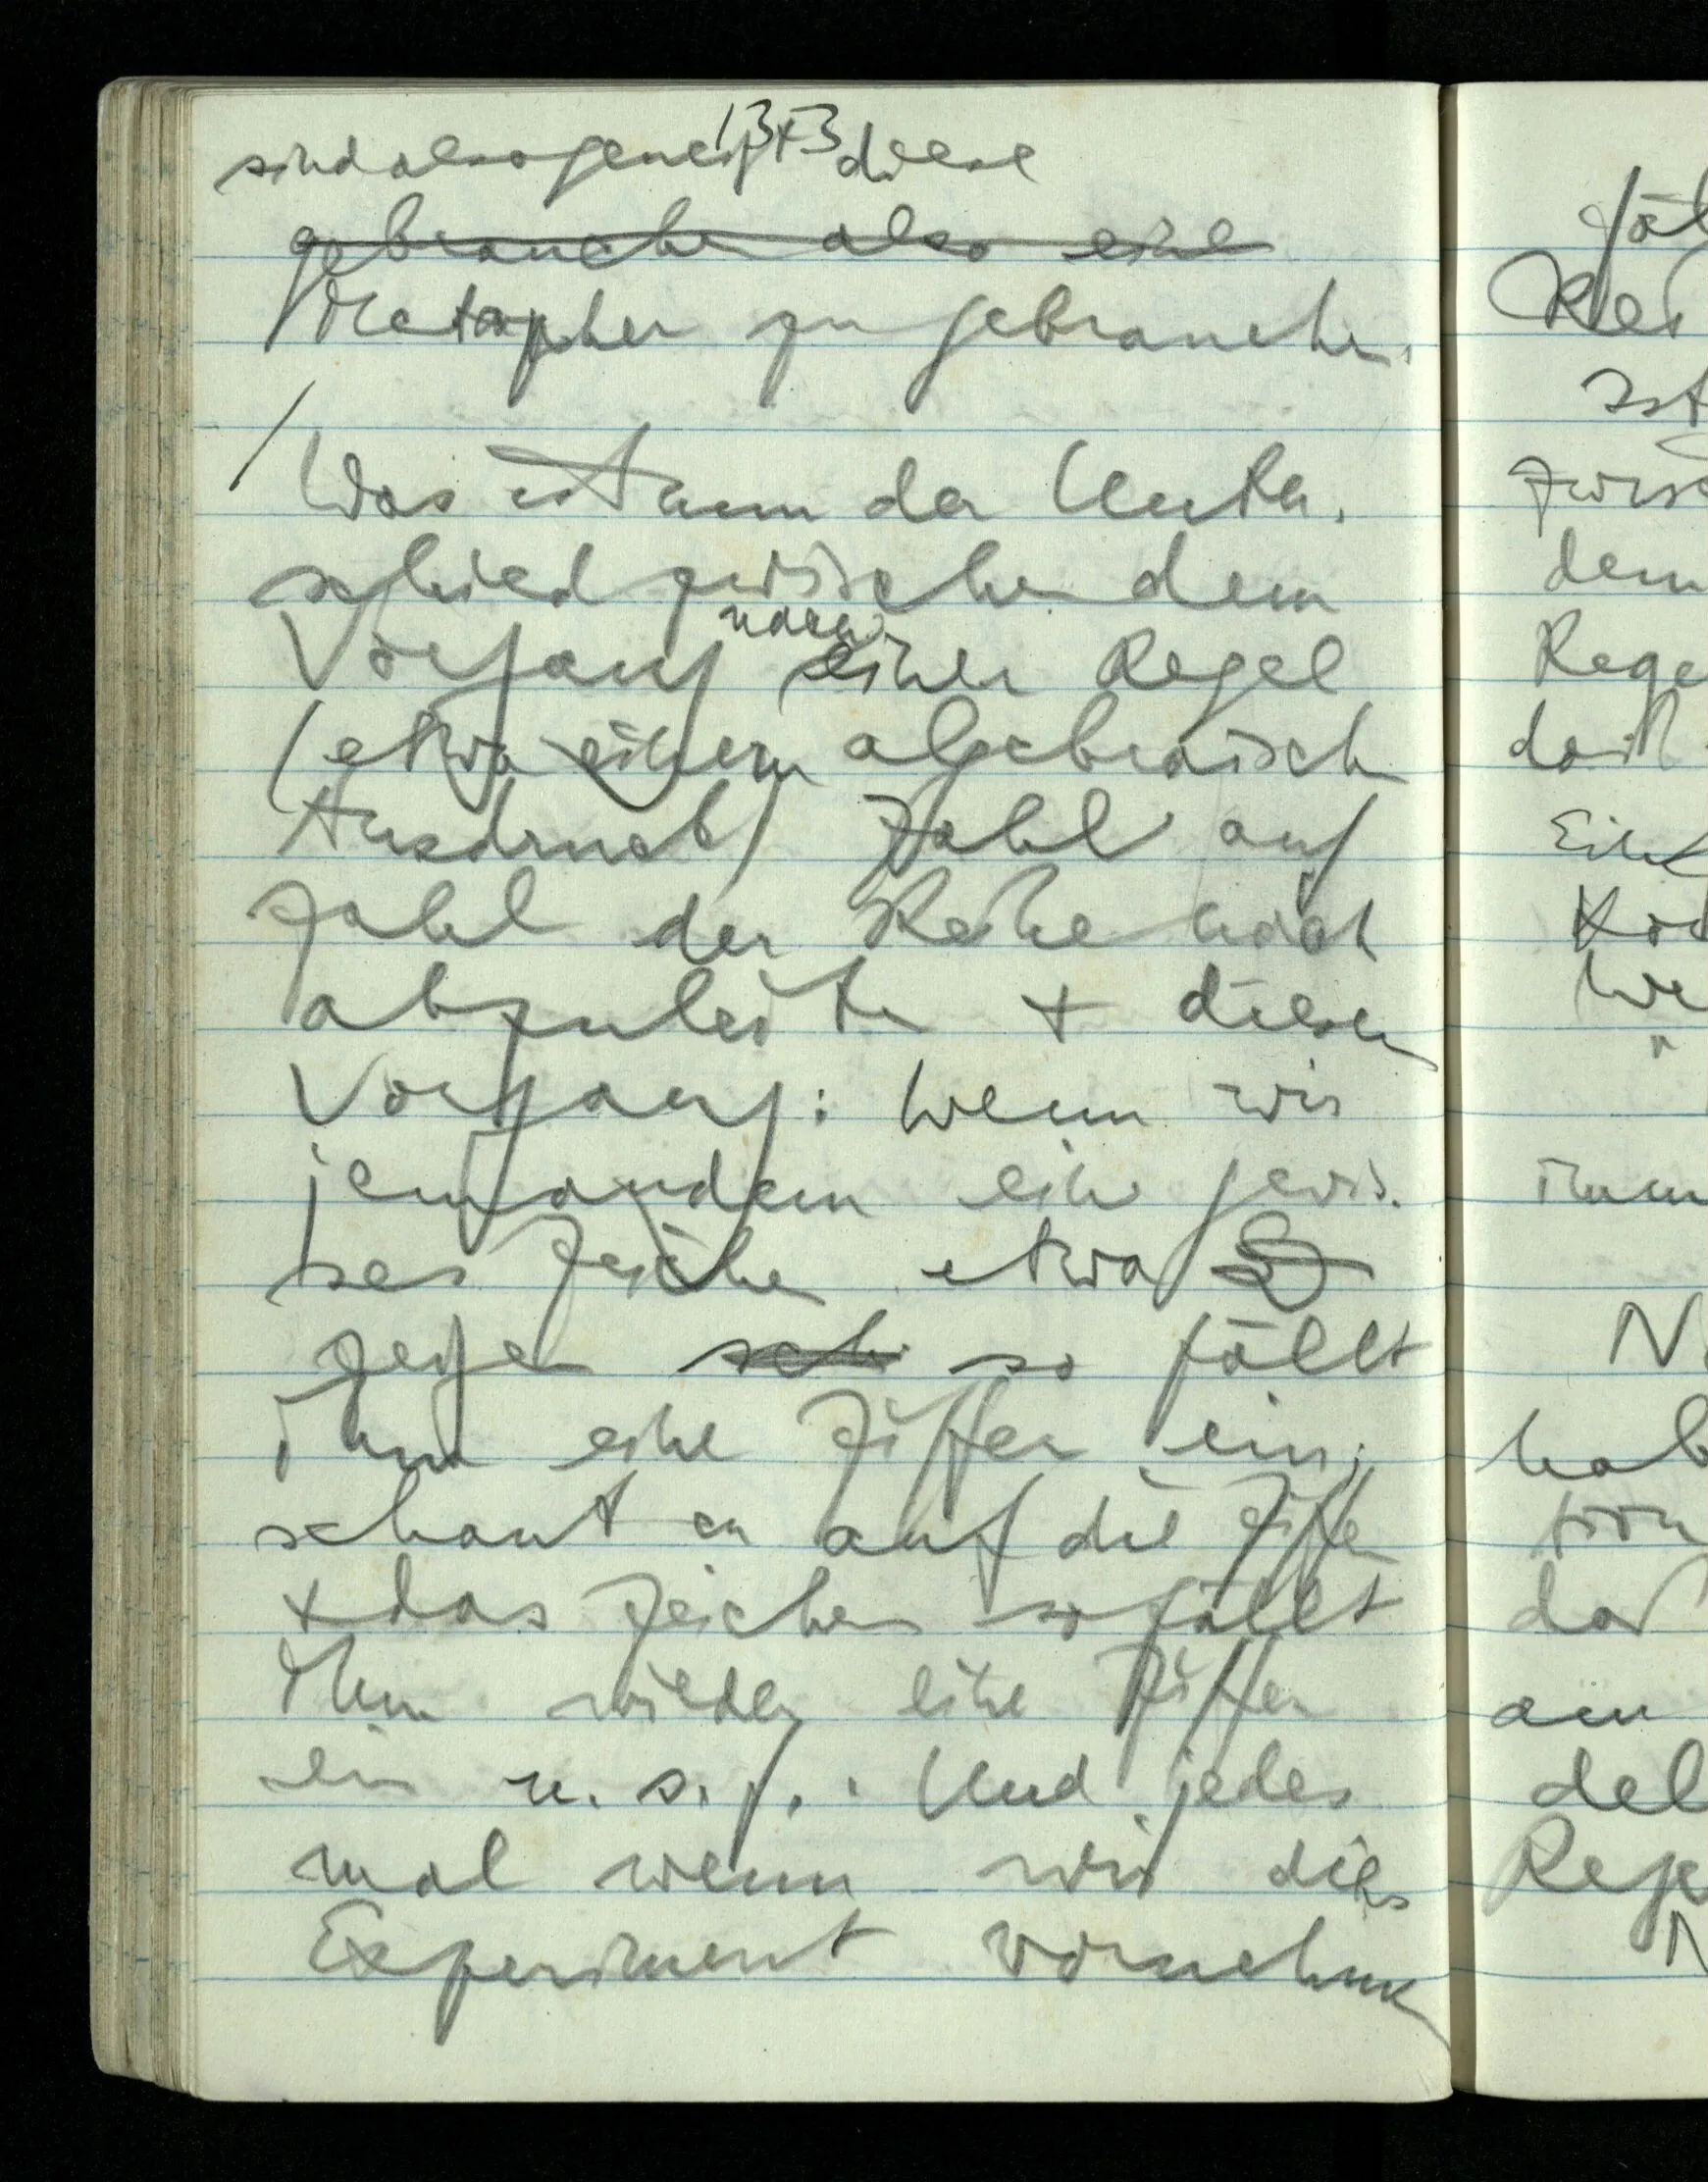 13+3
sind also geneigt diese
gebrauchen also eine
Metapher zu gebrauchen.
/ Was ist nun der Unter-
schied zwischen dem
nach
Vorgang einer Regel
(etwa einem algebraischen
Ausdruck) Zahl auf
Zahl der Reihe nach
abzuleiten + diesem
Vorgang: Wenn wir
jemandem ein gewis-
ses Zeichen etwa
zeigen sch so fällt
ihm eine Ziffer ein;
schaut er auf die Ziffer
+ das Zeichen so fällt
ihm wieder eine Ziffer
ein u. s. f.. Und jedes
mal wenn wir dies
Experiment vornehmen